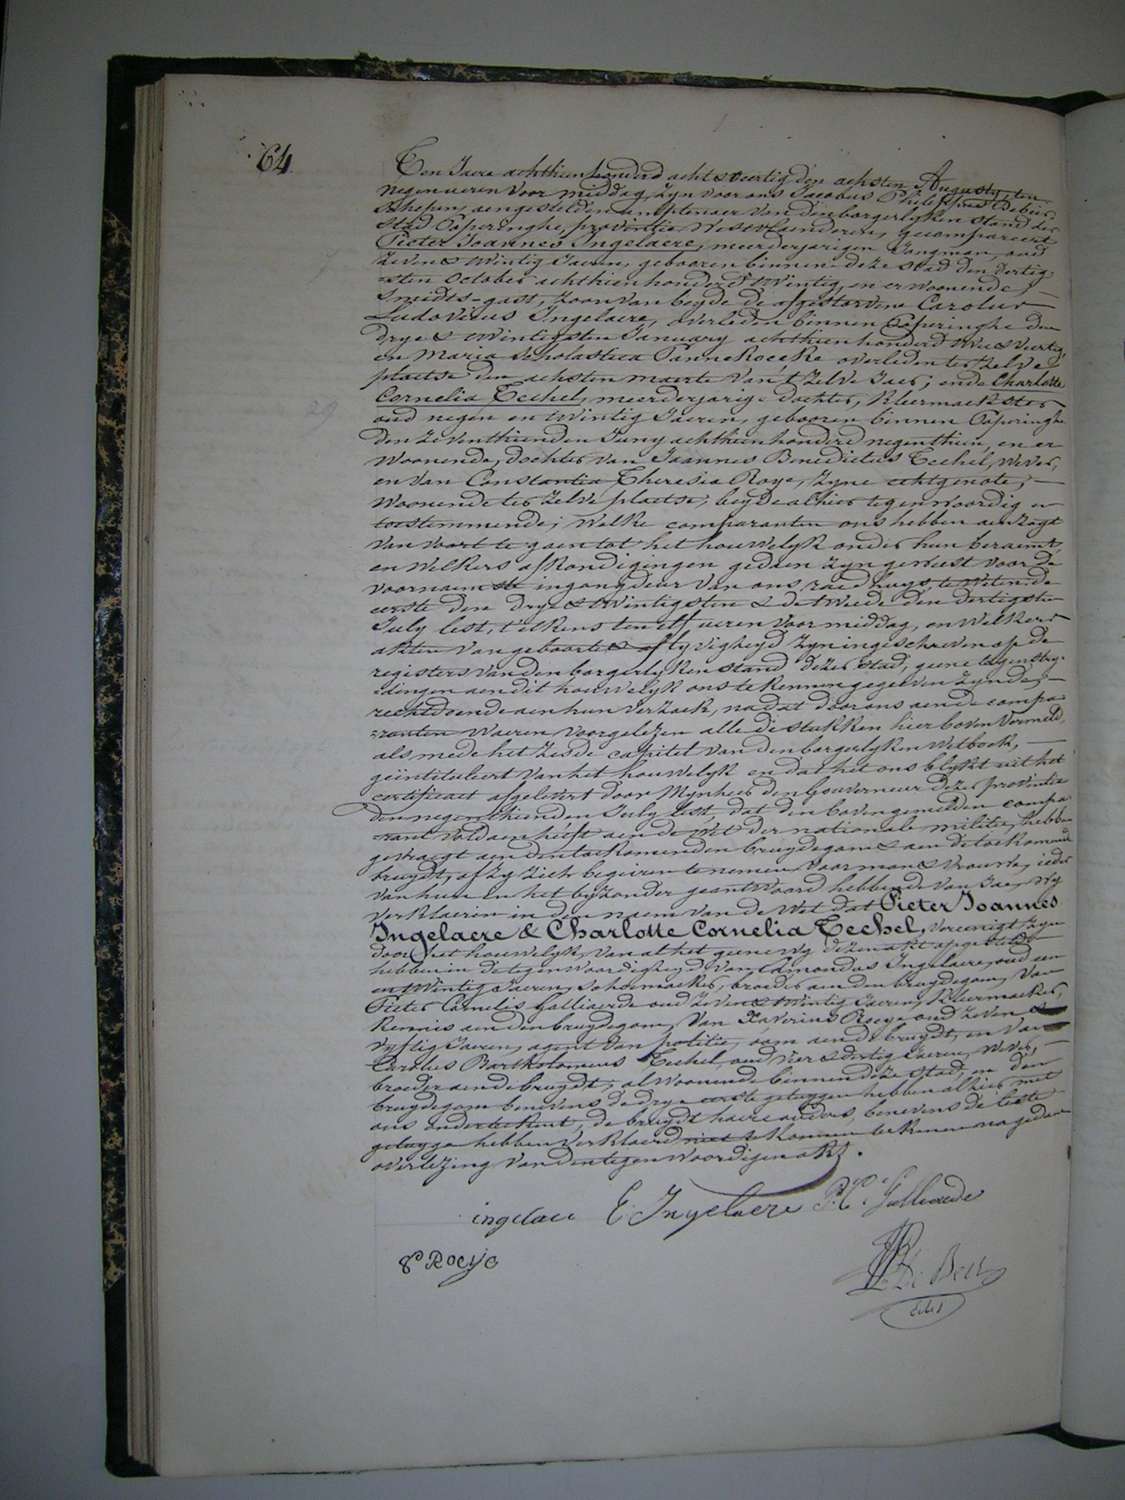 64
Ten Jaere achthienhonderd acht & veertig den achsten Augusty, ten
negen ueren voor middag, zyn voor ons Jacobus Philippus Debeir,
Schepen, aengestelden amptenaer van den borgerlyken stand der
stad Poperinghe, provintie Westvlaenderen, gecompareert
Pieter Joannes Ingelaere, meerderjarigen Jongman, oud
zeven & twintig Jaeren, gebooren binnen deze stad den dertig-
sten October achthienhonderd twintig, en er woonende
smidts-gast, zoon van beyde de afgestorvene Carolus
Ludovicus Ingelaere, overleden binnen Poperinghe den
drye & twintigsten January achthienhonderd twee & veertig,
en Maria Scholastica Pannekoecke overleden ter zelve
plaetse den achsten maerte van 't zelve Jaer; ende Charlotte
Cornelia Techel, meerderjarige dochter, kleermaekster
oud negen en twintig Jaeren, gebooren binnen Poperinghe
den zeventhienden Juny achthienhonderd negenthien, en er
woonende, dochter van Joannes Benedictus Techel, wever,
en van Constantia Theresia Roye, zyne echtgenote,
woonende ter zelve plaetse, beyde alhier tegenwoordig en
toestemmende; welke comparanten ons hebben aenzogt
van voort te gaen tot het houwelyk onder hun beraemt,
en welkers afkondigingen gedaen zyn geweest voor de
voornaemste ingangdeur van ons raedhuys, te weten de
eerste den drye & twintigsten & de tweede den dertigsten
July lest, t'elkens ten elf ueren voor middag, en welkers
akten van geboorte & aflyvigheyd zyn ingeschreven op de
registers van den borgerlyken stand dezer stad, geene tegenstry-
dingen aen dit houwelyk ons te kennen gegeven zynde,
rechtdoende aen hun verzoek, na dat door ons aen de compa-
ranten waeren voorgelezen alle de stukken hier boven vermeld,
als mede het zesde capitel van den borgerlyken wetboek,
geïntituleert van het houwelyk en dat het ons blykt uit het
certificaet afgelevert door Mynheer den Gouverneur dezer provintie
den negenthienden July lest, dat den bovengemelden compa-
rant voldaen heeft aen de wet der nationale militie, hebben
gevraegt aen den toekomenden bruydegom & aen de toekomende
bruydt, of zy zich begeiren te nemen voor man & vrouwe, ieder
van hun en het byzonder geantwoord hebbende van Jae, wy
verklaeren in den naem van de wet dat Pieter Joannes
Ingelaere & Charlotte Cornelia Techel, vereenigt zyn
door het houwelyk, van al het geene wy dezen akt opgesteld
hebben in de tegenwoordigheyd van Edmondus Ingelaere, oud een
en twintig Jaeren, schoemaeker, broeder aen den bruydegom, van
Pieter Cornelis Galliaerde oud zeven & twintig Jaeren, kleermaeker,
kennis aen den bruydegom, van Xaverius Roeye oud zeven &
vyftig Jaeren, agent van politie, oom aen de bruydt, en van
Carolus Bartholomeus Techel, oud vier & dertig Jaeren, wever,
broeder aen de bruydt; al woonende binnen deze stad, en den
bruydegom benevens de drye eerste getuygen hebben alhier met
ons onderteekent, de bruydt haere ouders, benevens de leste
getuyge hebben verklaerd niet te konnen teekenen na gedaen
overlezing van den tegenwoordigen akt.
ingelaere E. Ingelaere P. C. Galliaerde
Roeye
De Beir